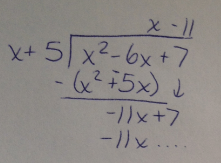 x - 11
x + 5 x² - 6x + 7
- (x² + 5x) ↓
-11x + 7
-11x ....